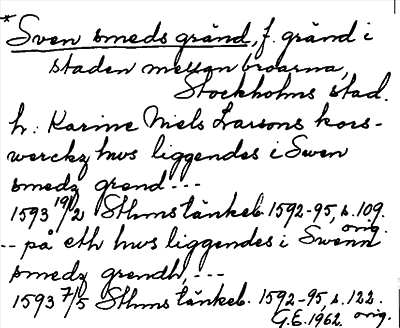 * Sven smeds gränd, f. gränd i
staden mellan broarna,
Stockholms stad.
h: Karine Niels Larsons kors-
werckz hws liggendes i Swen
smedz grend ---
1593 19/2 Sthms tänkeb. 1592-95, s. 109.
orig.
-- på eth hws liggendes i Swenn
smedz grendh, ---
1593 7/5 Sthms tänkeb. 1592-95, s. 122.
G.E. 1962. orig.